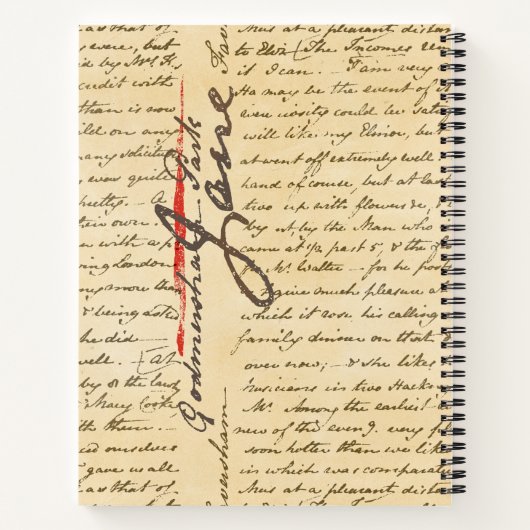 as that of
were, but
id by Mrs K,
credit with
than is now
ld on any
many
ever quite
pretty. — A
their own.
n with a p
ving London
more than
& being asked
he did —
well. — (at
by of the law
Mary Cooke
th them. —
ed ourselves
gave us all
as that of
Godmersham Park
Jane
Fav
versham
thus at a pleasant distan
to Eliz. (The Incomes rem
it I can. — I am very
Ha may be the event of it
even iosity could be satis
will like my Elinor, but
at went off extremely well
hand of course, but at last
two up with flowers &c,
by nt by the Man who
came at ½ past 5, & the
for Mr. Walter — for he
give much pleasure a
which it rose, his calling
family dinner on that
over now; — & she likes
Musicians in two Hack
Mr. Among the earliest
new of the even.g. very
soon hotter than we like
in which was comparati
thus at a pleasant distan